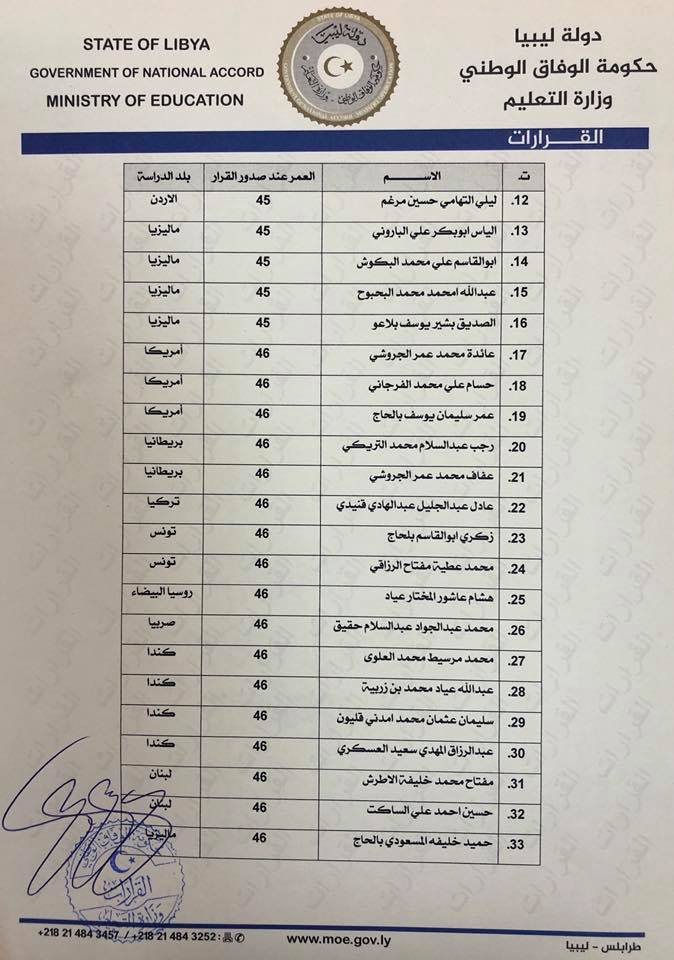 STATE OF LIBYA
GOVERNMENT OF NATIONAL ACCORD
MINISTRY OF EDUCATION
دولة ليبيا
حكومة الوفاق الوطني
وزارة التعليم
القرارات
ت. الاسم العمر عند صدور القرار بلد الدراسة
12. ليلي التهامي حسين مرغم 45 الاردن
13. الياس ابوبكر علي الباروني 45 ماليزيا
14. ابوالقاسم علي محمد البكوش 45 ماليزيا
15. عبدالله امحمد محمد البحبوح 45 ماليزيا
16. الصديق بشير يوسف بلاعو 45 ماليزيا
17. عائدة محمد عمر الجروشي 46 أمريكا
18. حسام علي محمد الفرجاني 46 أمريكا
19. عمر سليمان يوسف بالحاج 46 أمريكا
20. رجب عبدالسلام محمد التريكي 46 بريطانيا
21. عفاف محمد عمر الجروشي 46 بريطانيا
22. عادل عبدالجليل عبدالهادي قنيدي 46 تركيا
23. زكري ابوالقاسم بلحاج 46 تونس
24. محمد عطية مفتاح الرزاقي 46 تونس
25. هشام عاشور المختار عياد 46 روسيا البيضاء
26. محمد عبدالجواد عبدالسلام حقيق 46 صربيا
27. محمد مرسيط محمد العلوى 46 كندا
28. عبدالله عياد محمد بن زربية 46 كندا
29. سليمان عثمان محمد امدني قليون 46 كندا
30. عبدالرزاق المهدي سعيد العسكري 46 كندا
31. مفتاح محمد خليفة الاطرش 46 لبنان
32. حسين احمد علي الساكت 46 لبنان
33. حميد خليفه المسعودي بالحاج 46 ماليزيا
القرارات
+218 21 484 3457 / +218 21 484 3252 :
www.moe.gov.ly
طرابلس - ليبيا